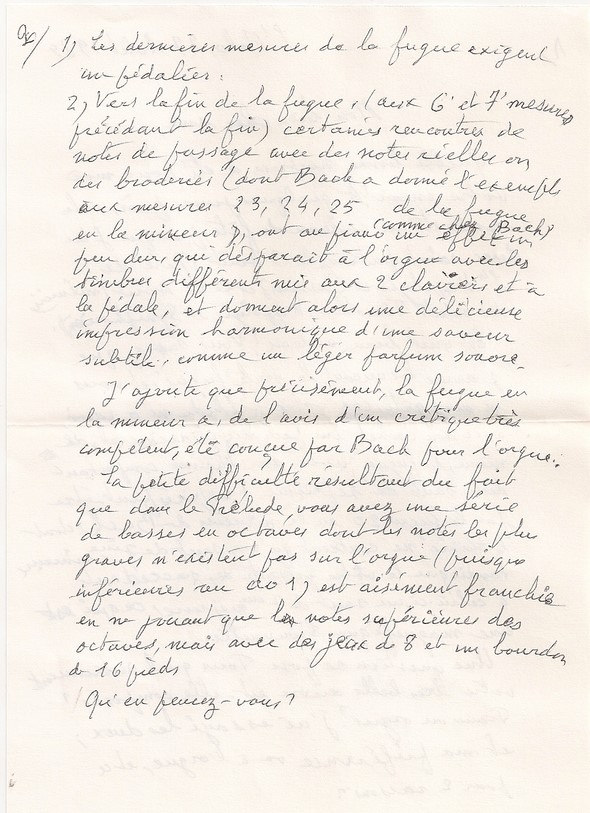 1) Les dernières mesures de la fugue exigent
un pédalier.
2) Vers la fin de la fugue, (aux 6e et 7e mesures
précédant la fin) certaines rencontres de
notes de passage avec des notes réelles ou
des broderies (dont Bach a donné l'exemple
aux mesures 23, 24, 25 de la fugue
en la mineur), ont au piano (comme chez Bach) un effet un
peu dur, qui disparaît à l'orgue avec les
timbres différents mis aux 2 claviers et à
la pédale, et donnent alors une délicieuse
impression harmonique d'une saveur
subtile, comme un léger parfum sonore.
J'ajoute que précisément, la fugue en
la mineur a, de l'avis d'un critique très
compétent, été conçue par Bach pour l'orgue.
La petite difficulté résultant du fait
que dans le Prélude, vous avez une série
de basses en octaves dont les notes les plus
graves n'existent pas sur l'orgue (puisque
inférieures au do 1) est aisément franchie
en ne jouant que les notes supérieures des
octaves, mais avec des jeux de 8 et un bourdon
de 16 pieds
Qu'en pensez-vous?